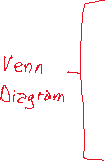 Venn
Diagram